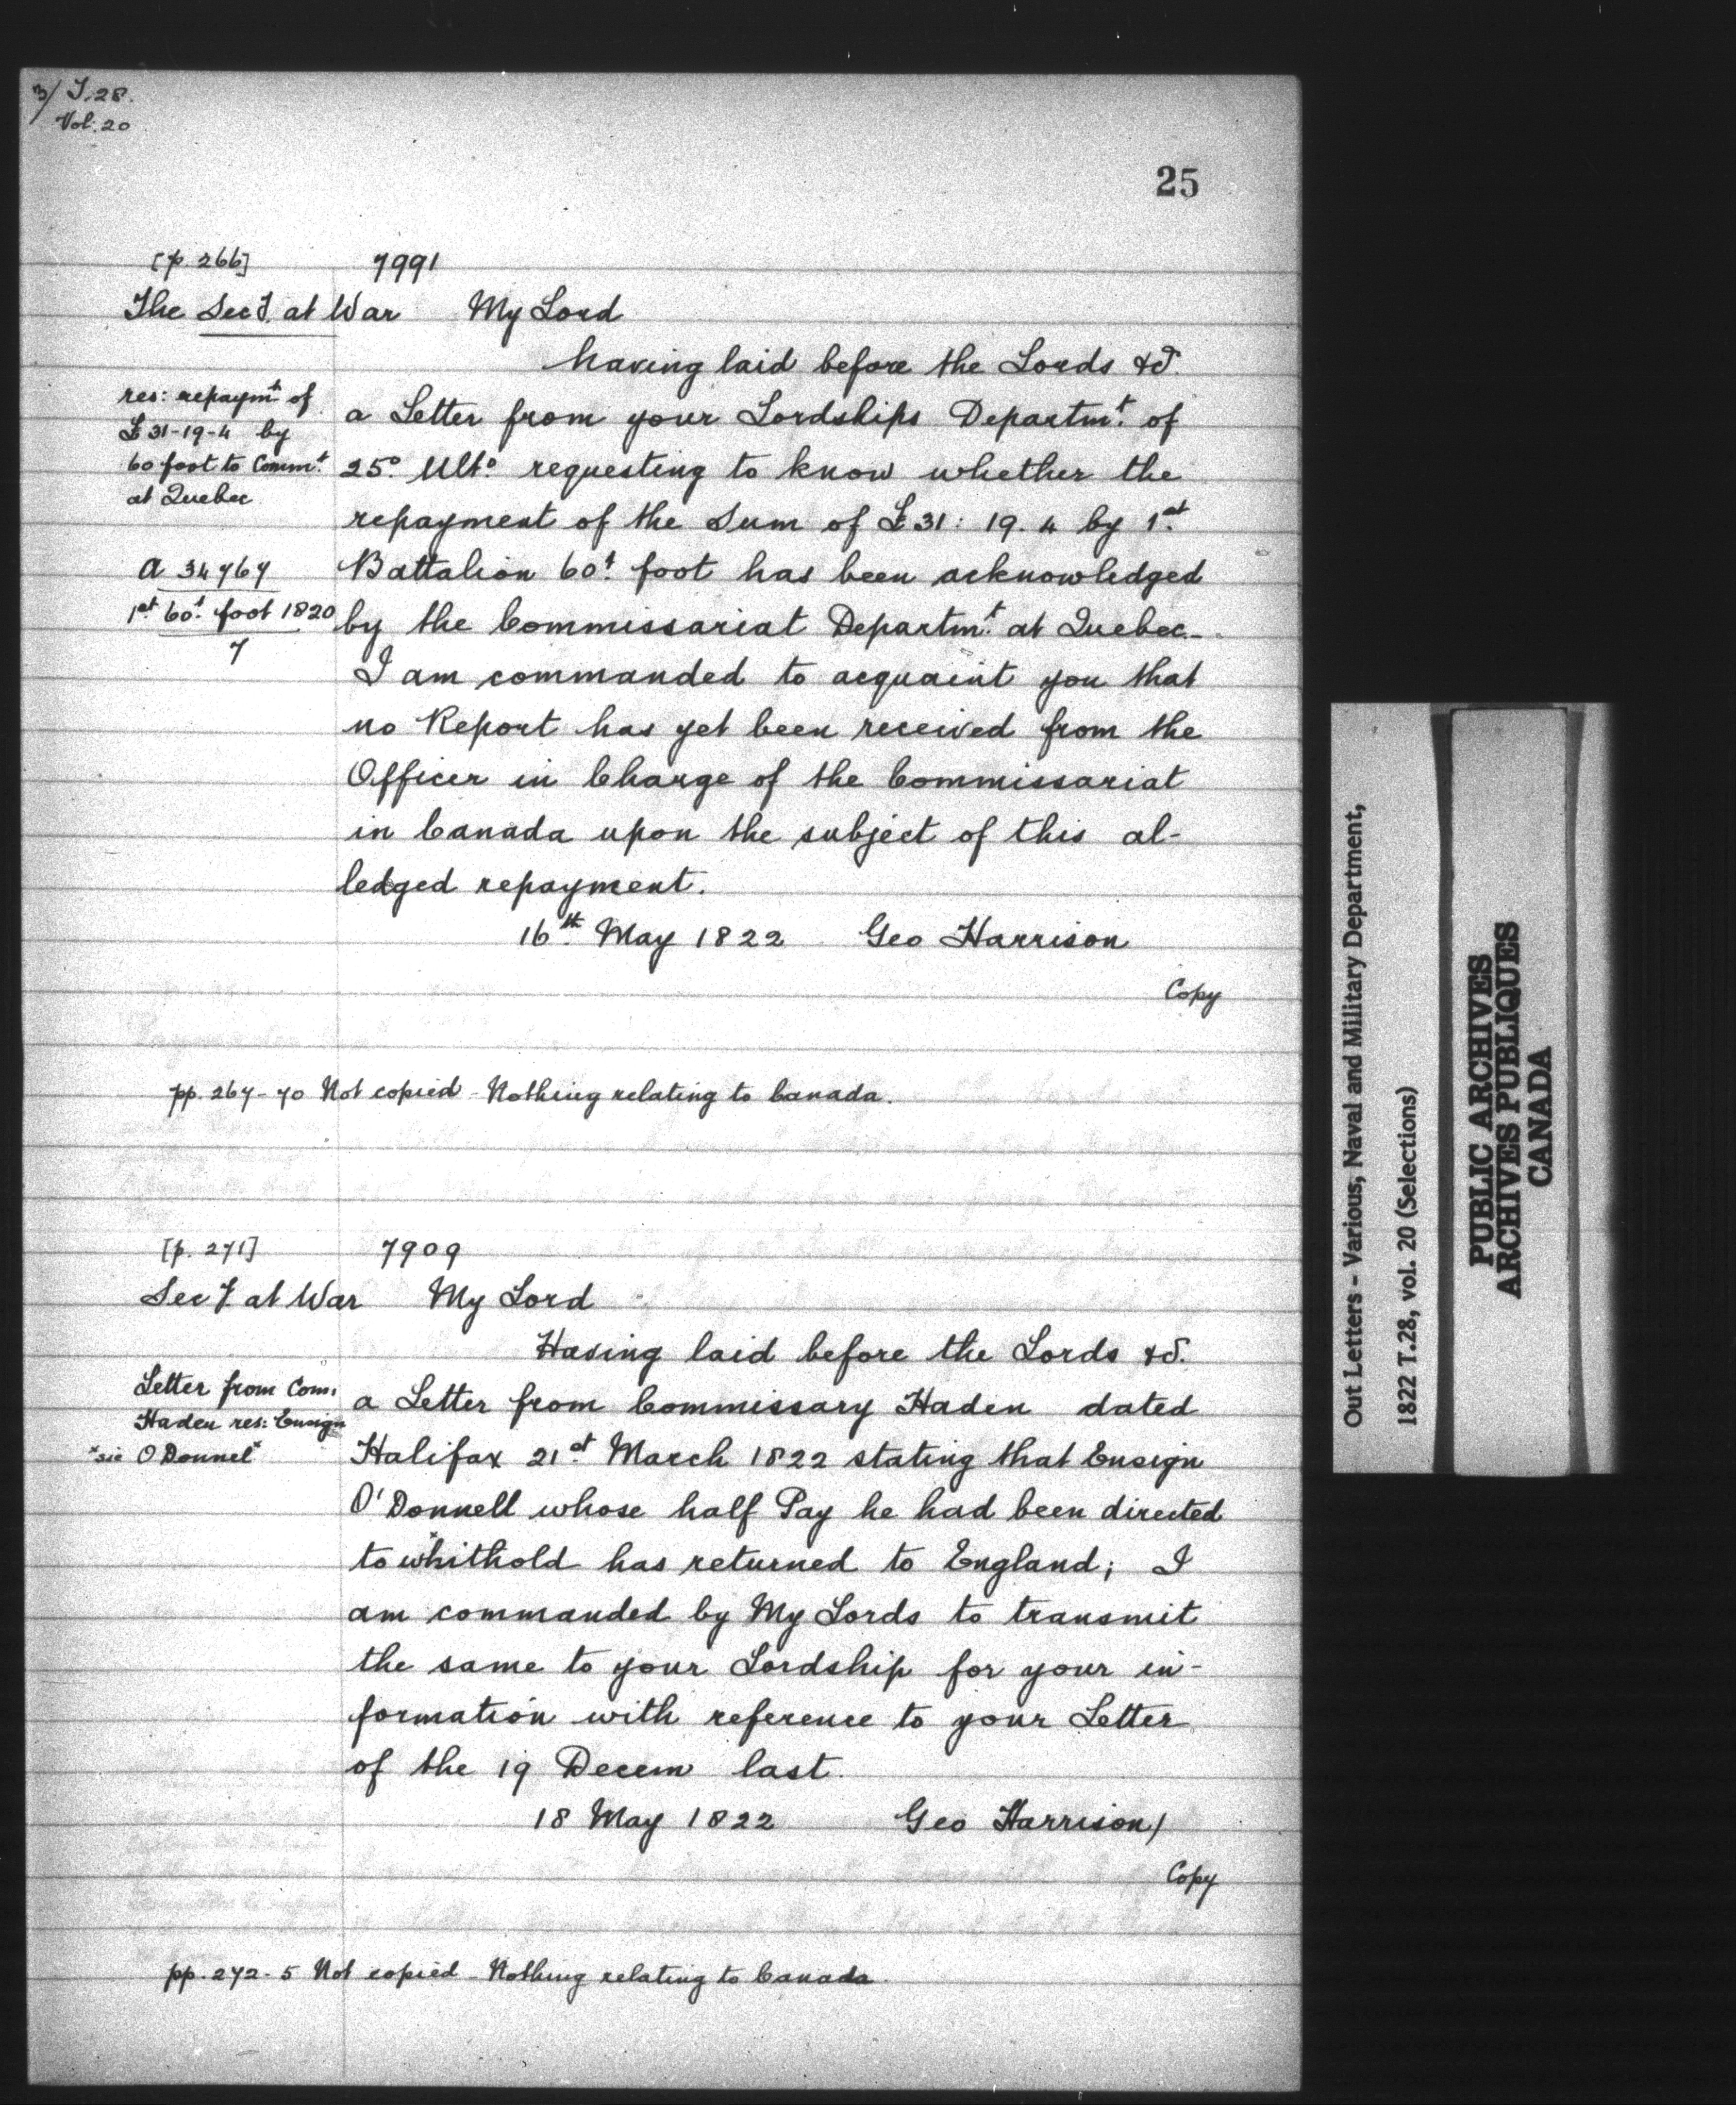 3/ T.28.
Vol. 20
25
[p. 266] 7991
The Secy. at War My Lord
having laid before the Lords &c.
res: repaymt of
£31-19-4 by
60 foot to Commt.
at Quebec
a Letter from your Lordships Departmt. of
25o. Ulto. requesting to know whether the
repayment of the Sum of £31: 19. 4 by 1st.
A 34767
1st 60t. foot 1820
7
Battalion 60t. foot has been acknowledged
by the Commissariat Departmt. at Quebec -
I am commanded to acquaint you that
no Report has yet been received from the
Officer in Charge of the Commissariat
in Canada upon the subject of this al-
ledged repayment.
16th. May 1822 Geo Harrison
Copy
pp. 267-70 Not copied - Nothing relating to Canada.
[p. 271] 7909
Secy at War My Lord
Having laid before the Lords &c.
Letter from Com:
Haden res: Ensign
*sic O Donnel*
a Letter from Commissary Haden dated
Halifax 21st. March 1822 stating that Ensign
O'Donnell whose half Pay he had been directed
to *whithold has returned to England; I
am commanded by My Lords to transmit
the same to your Lordship for your in-
formation with reference to your Letter
of the 19 Decem last.
18 May 1822 Geo Harrison/
Copy
pp. 272-5 Not copied - Nothing relating to Canada.
Out Letters - Various, Naval and Military Department,
1822 T.28, vol. 20 (Selections)
PUBLIC ARCHIVES
ARCHIVES PUBLIQUES
CANADA